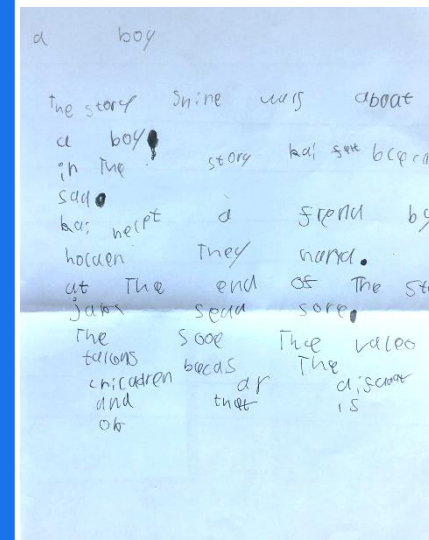 a boy
The story Snine wars aboat
a boy
in The story kai
sad.
kai helpt a frend by
holden They hand.
at The end of The sto
sead sore.
The Sooe The valeo
talons becas The
chicadren ar
and that is
ok